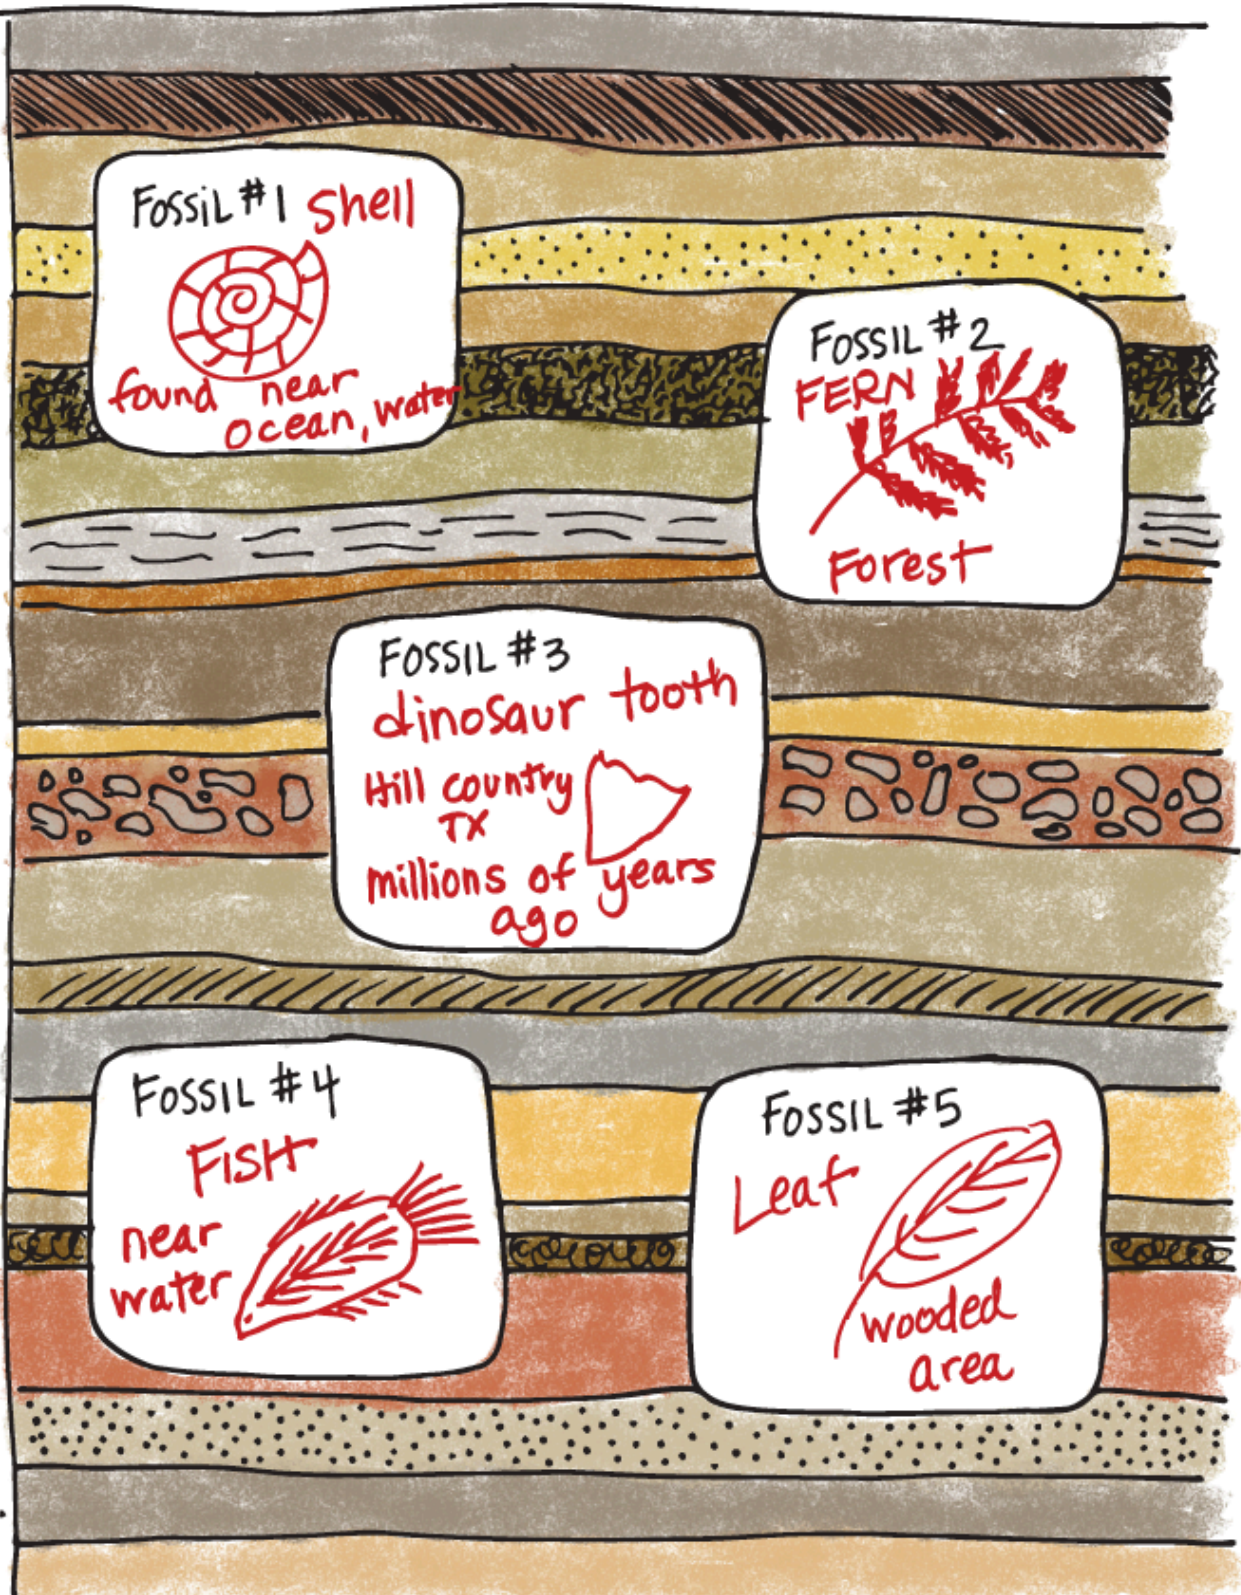 FOSSiL #1 Shell
found near
ocean, water
FOSSIL #2
FERN
Forest
FOSSIL #3
dinosaur tooth
Hill country
TX
millions of years
ago
FOSSIL #4
FISH
near
water
FOSSIL #5
Leaf
wooded
area